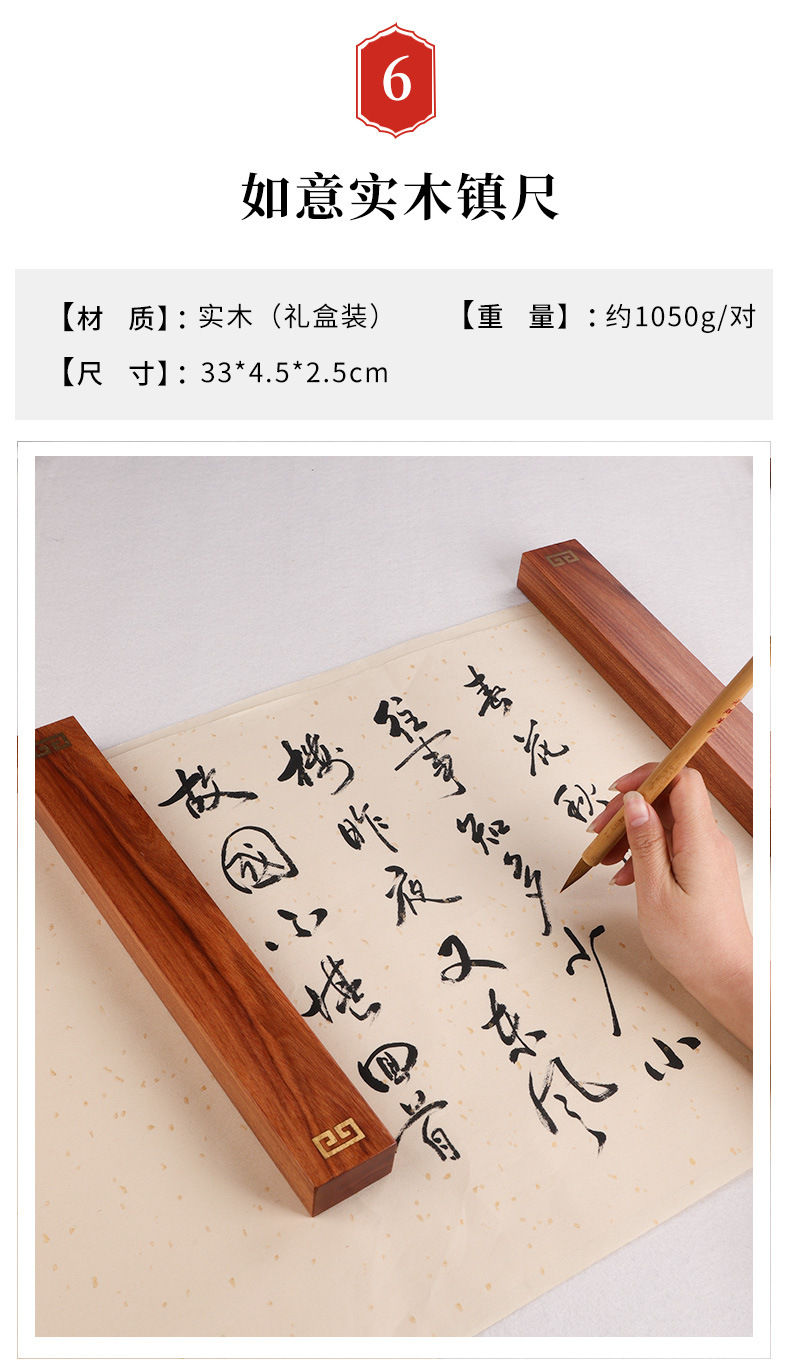 6
如意实木镇尺
【材 质】：实木（礼盒装）
【重 量】：约1050g/对
【尺 寸】：33*4.5*2.5cm
春花秋
往事知多少小
楼昨夜又东风
故國不堪回首